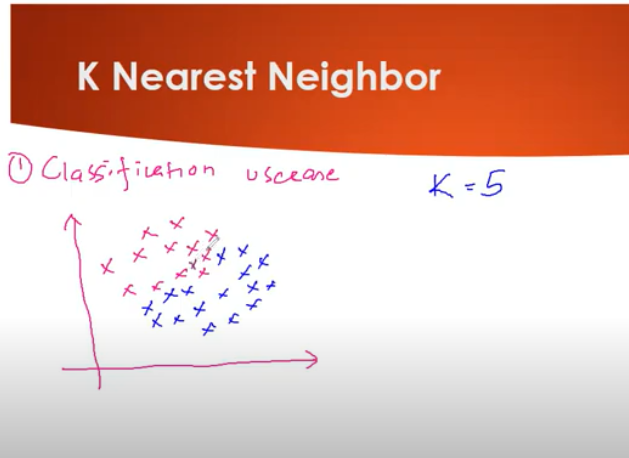 K Nearest Neighbor
① Classification usecase
K = 5